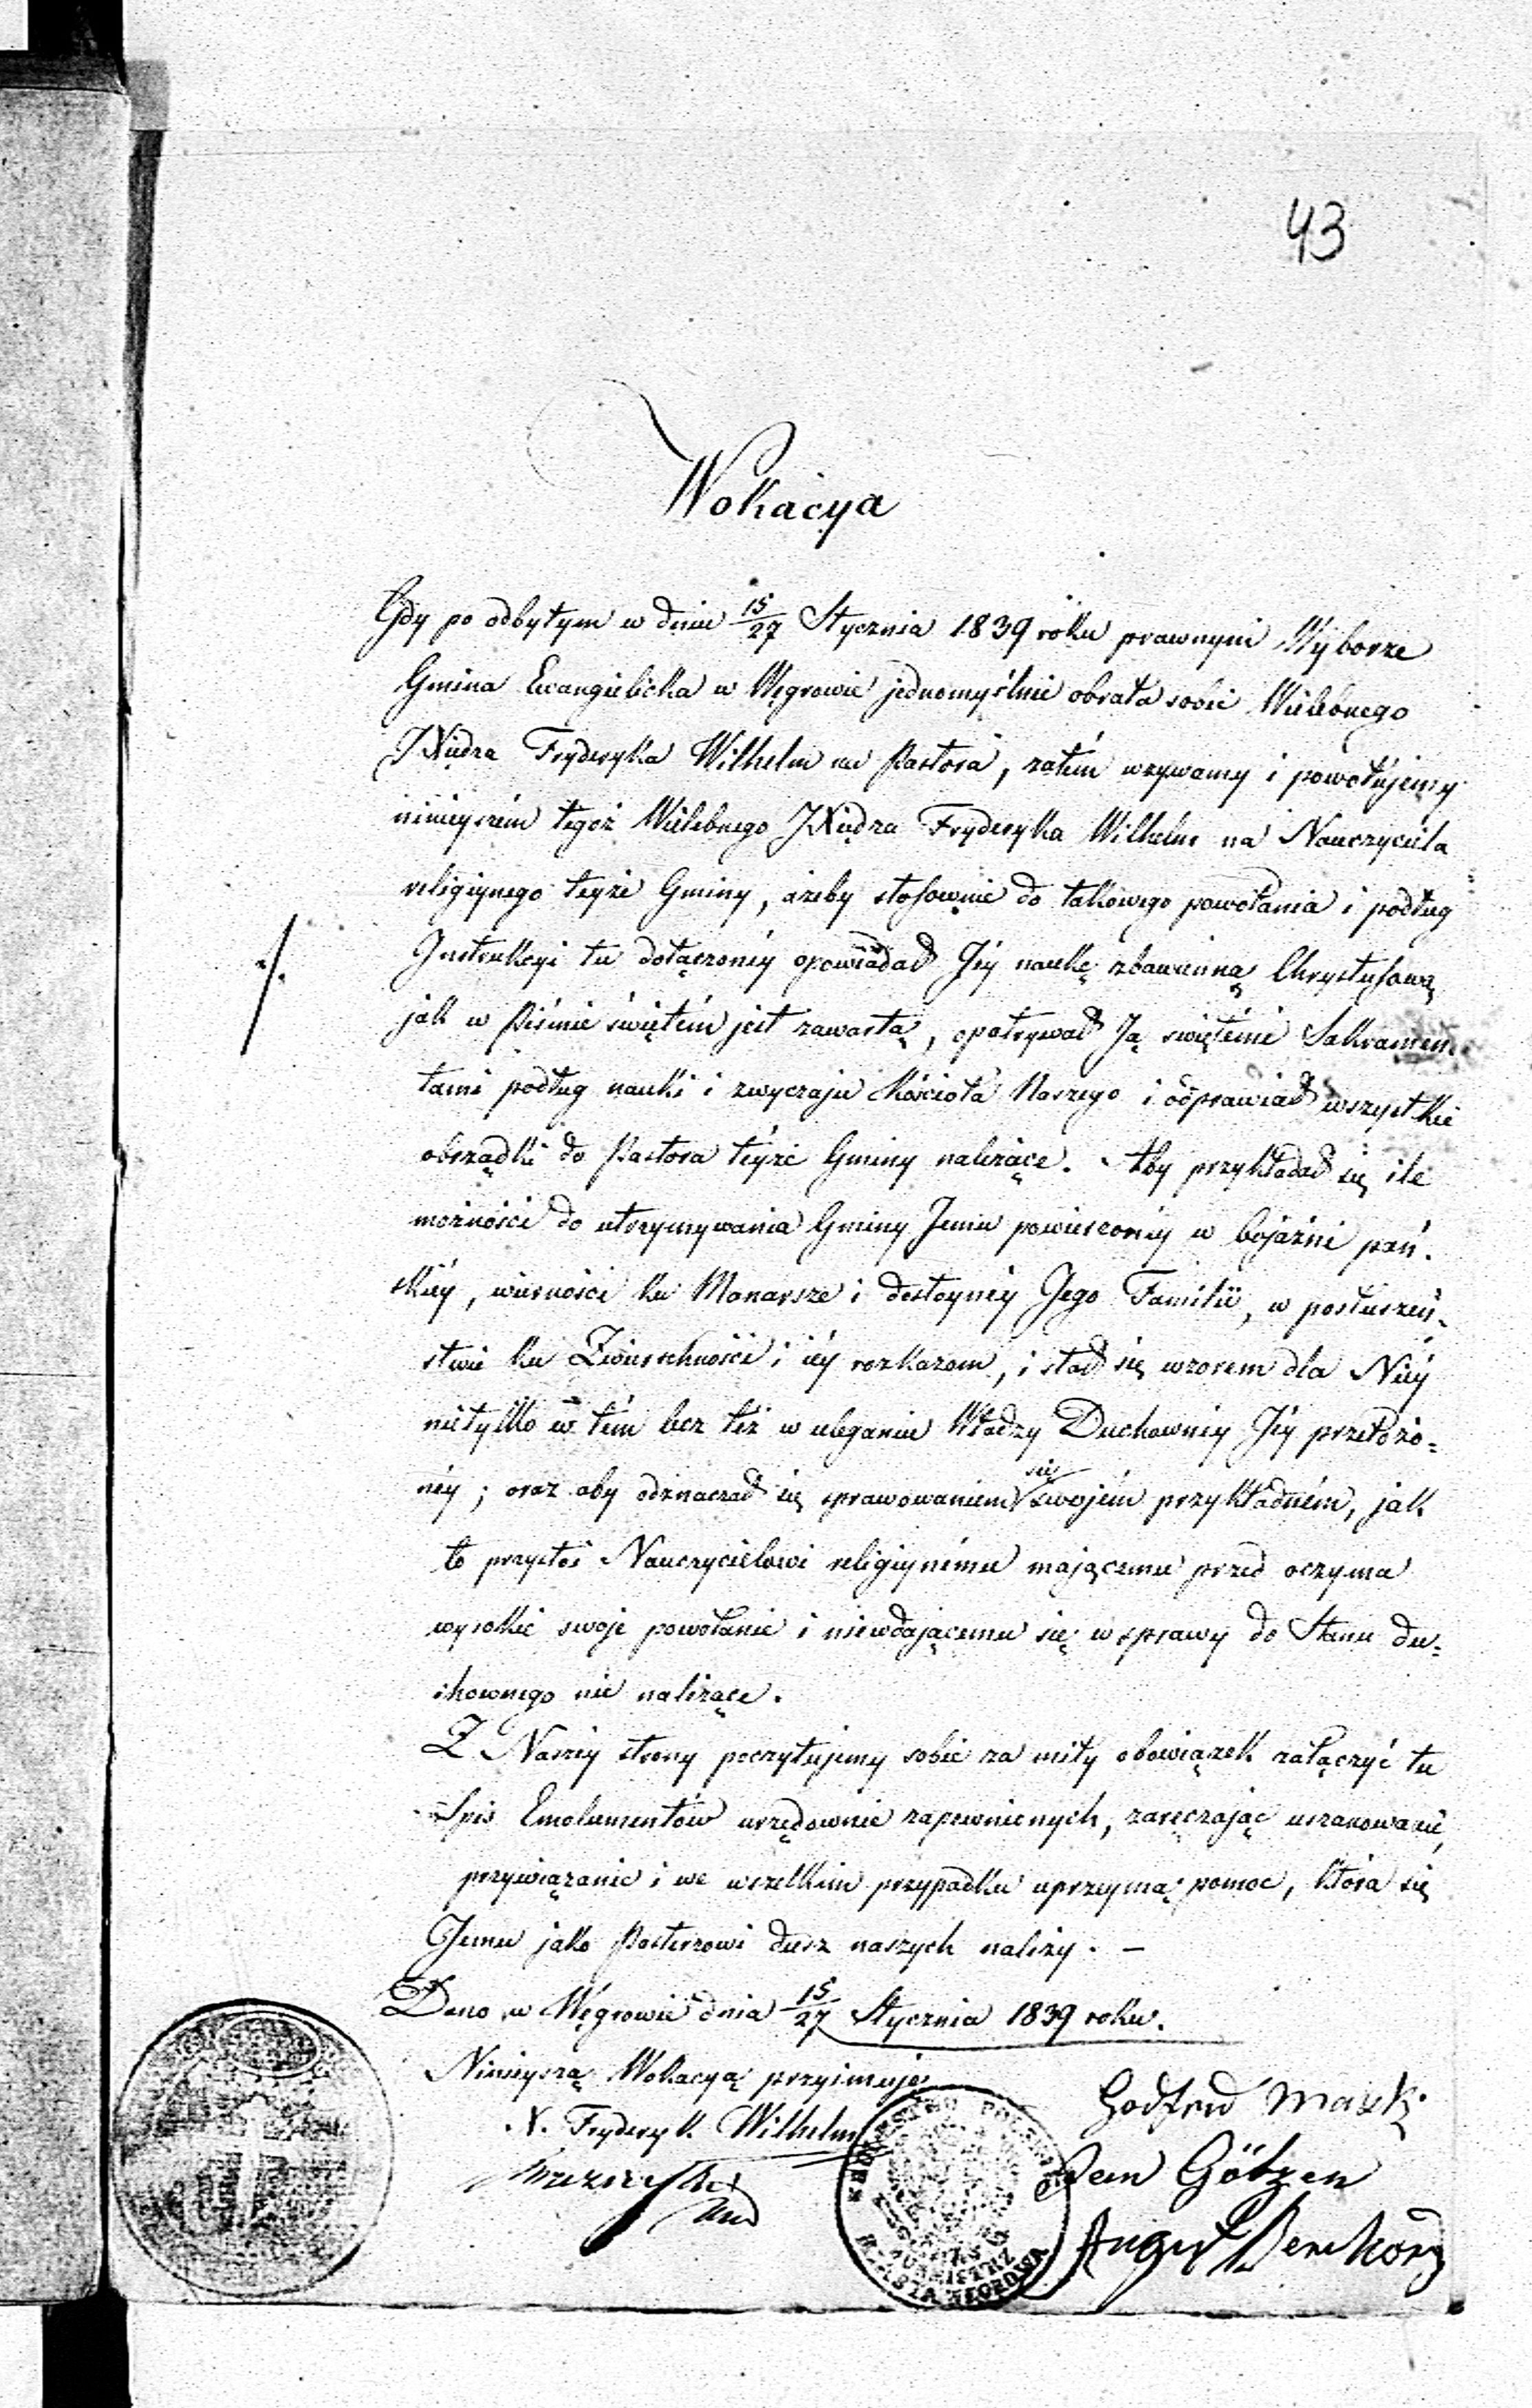 43
Wokacya
Gdy po odbytym w dniu 15/27 Stycznia 1839 roku prawnym Wyborze
Gmina Ewangielicka w Węgrowie jednomyślnie obrała sobie Wielebnego
JXiędza Fryderyka Wilhelm na Pastora, zatém wzywamy i powołujemy
ninieyszém tegoż Wielebnego JXiędza Fryderyka Wilhelm na Nauczyciela
religiynego teyże Gminy, ażeby stosownie do takowego powołania i podług
./. Instrukcyi tu dołączonéy opowiadał Jéy naukę zbawienną Chrystusową
jak w Piśmie świętém jest zawartą, opatrywał Ją świętemi Sakramen
tami podług nauki i zwyczaju Kościoła Naszego i odprawiał wszystkie
obrządki do Pastora téyże Gminy należące. Aby przykładał się ile
możności do utrzymywania Gminy Jemu powierzonéy w bojaźni pań-
skiéy, wierności ku Monarsze i dostoynéy Jego Familii, w posłuszeń-
stwie ku Zwierzchności i iéy rozkazom, i stał się wzorem dla Niéy
nietylko w tém lecz téż w uleganiu Władzy Duchownéy Jéy przełożo=
néy; oraz aby odznaczał się sprawowaniem się swojém przykładném, jak
to przystoi Nauczycielowi religiynému mającemu przed oczyma
wysokie swoje powołanie i niewdającemu się w sprawy do Stanu du=
chownego nie należące.
Z Naszéy strony poczytujemy sobie za miły obowiązek załączyć tu
Spis Emolumentów urzędownie zapewnionych, zaręczając uszanowanie,
przywiązanie i we wszelkim przypadku uprzeymą pomoc, która się
Jemu jako Pasterzowi dusz naszych należy. —
Dano w Węgrowie dnia 15/27 Stycznia 1839 roku.
Ninieyszą Wokacyą przyimuję
X. Fryderyk Wilhelm
Gödzen
August